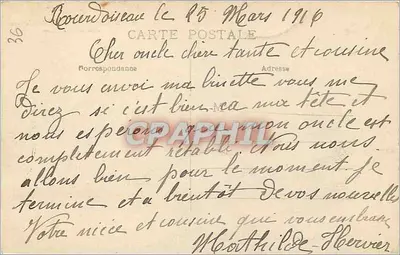 Rourdoiseau le 25 Mars 1916
36
CARTE POSTALE
Cher oncle chère tante et cousine
Correspondance Adresse
Je vous envoi ma binette vous me
direz si c'est bien ça ma tête et
nous esperons que mon oncle est
CPAPHIL
completement retabli. Nois nous
allons bien pour le moment. Je
termine et a bientôt de vos nouvelles
Votre nièce et cousine que vous embrasse
Mathilde Hervier